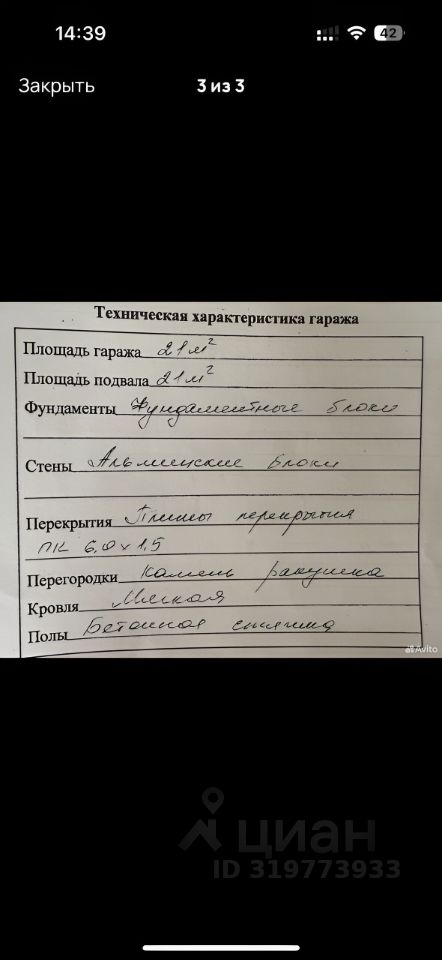 14:39
42
Закрыть
3 из 3
Техническая характеристика гаража
Площадь гаража 21 м²
Площадь подвала 21 м²
Фундаменты Фундаментные блоки
Стены Альминские блоки
Перекрытия Плиты перекрытия
ПК 6,0 х 1,5
Перегородки Камень ракушка
Кровля Мягкая
Полы Бетонная стяжка
Avito
циан
ID 319773933